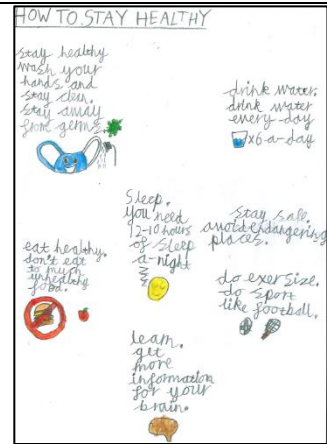 HOW TO STAY HEALTHY
stay healthy
wash your
hands and
stay clean.
stay away
from germs
drink water.
drink water
every-day
x6-a-day
Sleep.
you need
12-10 hours
of sleep
a-night
stay safe.
avoid endangering
places.
eat healthy.
don't eat
to much
unhealthy
food.
do exersize.
do sport
like football.
learn.
get
more
information
for your
brain.